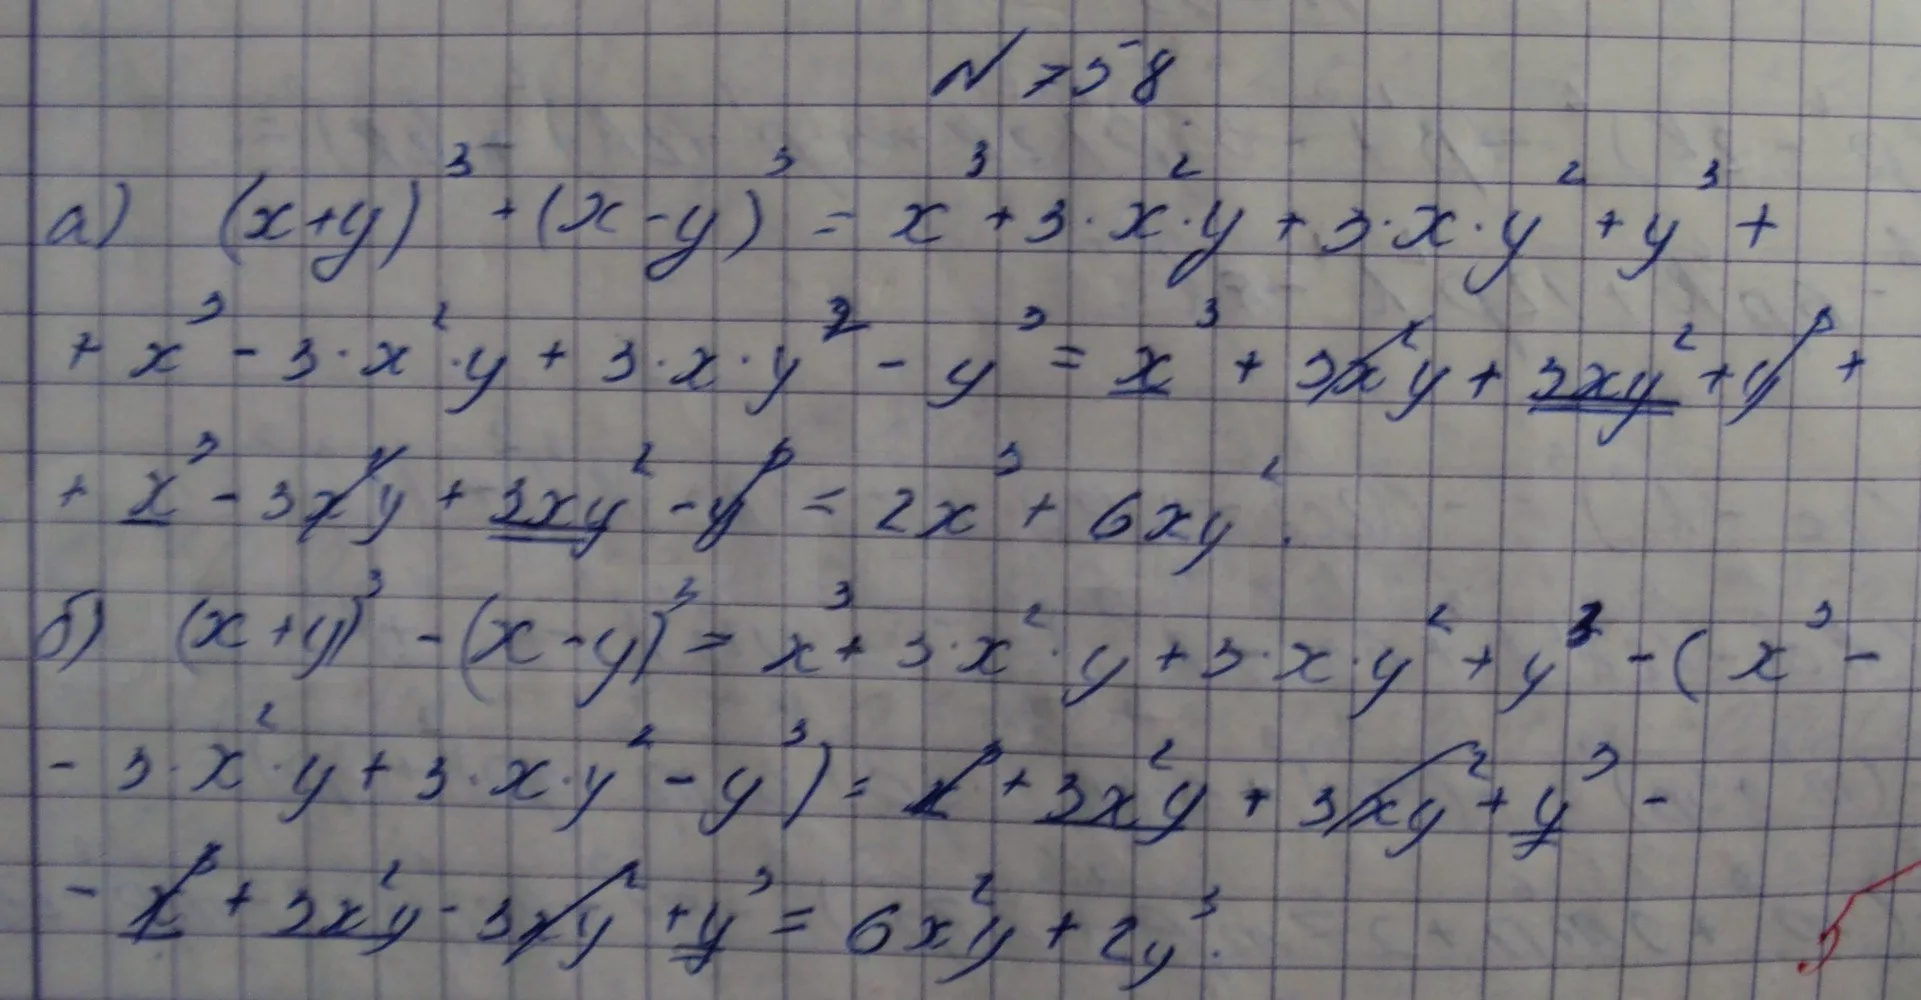 N 758
а) (x+y)³ + (x-y)³ = x³ + 3·x²·y + 3·x·y² + y³ +
+ x³ - 3·x²·y + 3·x·y² - y³ = x³ + 3x²y + 3xy² + y³ +
+ x³ - 3x²y + 3xy² - y³ = 2x³ + 6xy².
б) (x+y)³ - (x-y)³ = x³ + 3·x²·y + 3·x·y² + y³ - (x³ -
- 3·x²·y + 3·x·y² - y³) = x³ + 3x²y + 3xy² + y³ -
- x³ + 3x²y - 3xy² + y³ = 6x²y + 2y³.